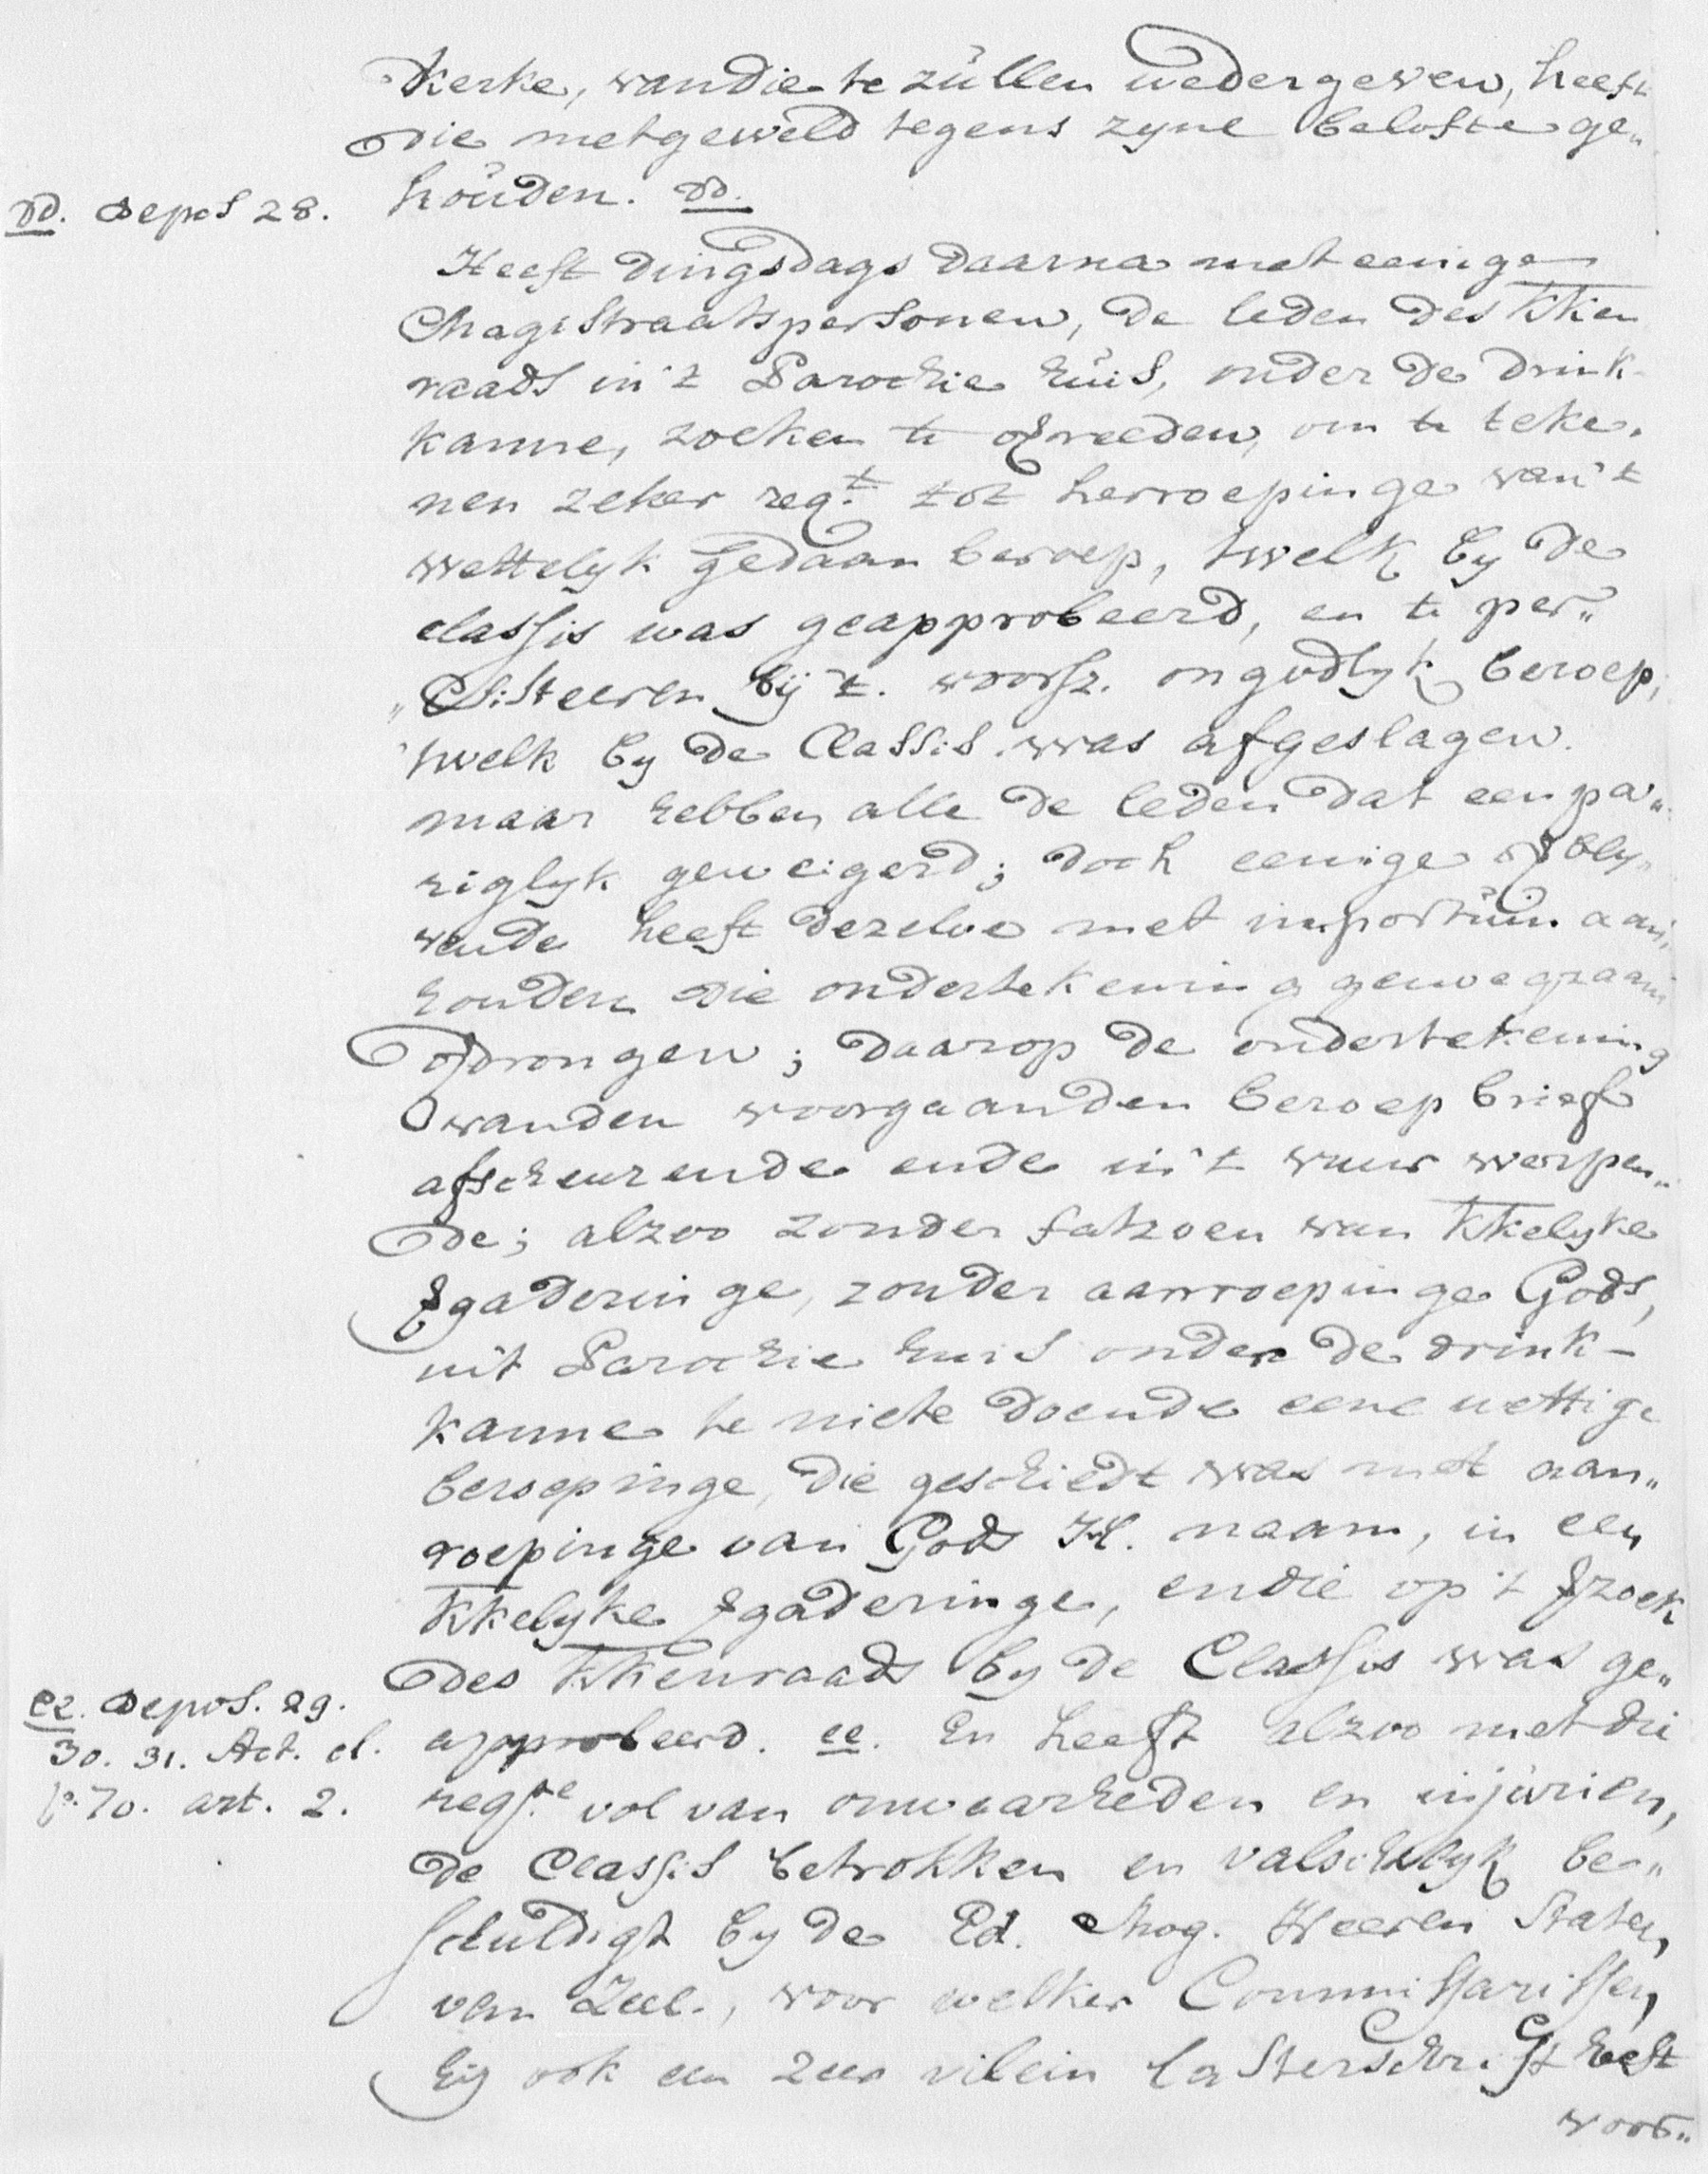 Kerke, van die te züllen wedergeven, heeft
die met geweld tegens zyne belofte ge„
houden. dd.
dd. depos 28.
Heeft dingsdags daarna met eenige
Magistraatspersonen, de leden des kken
raads in 't Parochie huis, onder de drink-
kanne, zoeken te overreden, om te teke„
nen zeker reqt. tot herroepinge van 't
wettelyk gedaan beroep, twelk by de
classis was geapprobeerd, en te per„
„sisteeren bij 't. voorsz. ongodlyk beroep,
'twelk by de Classis was afgeslagen.
maar hebben alle de leden dat eenpa„
riglyk geweigerd; doch eenige bly„
vende heeft dezelve met importuin aan„
houden die ondertekening genoegzaam
ofdrongen; daarop de ondertekening
van den voorgaanden beroep brief
afscheurende ende in 't vuur werpen„
de; alzoo zonder fatzoen van kkelyke
vgaderinge, zonder aanroepinge Gods,
uit Parochie huis onder de drink-
kanne te niete doende eene wettige
beroepinge, die geschiedt was met aan„
roepinge van Gods H. naam, in een
kkelyke vgaderinge, en die op 't vzoek
des kkenraads by de Classis was ge„
approbeerd. ee. En heeft alzoo met die
ee. depos. 29.
30. 31. Act. cl.
fo. 70. art. 2.
reqte vol van onwaarheden en injurien,
de Classis betrokken en valschelyk be„
schuldigt by de Ed. Mog. Heeren Staten
van Zeel., voor welker Commissarissen
hij ook een zeer vilein lasterschrift heeft
voor„